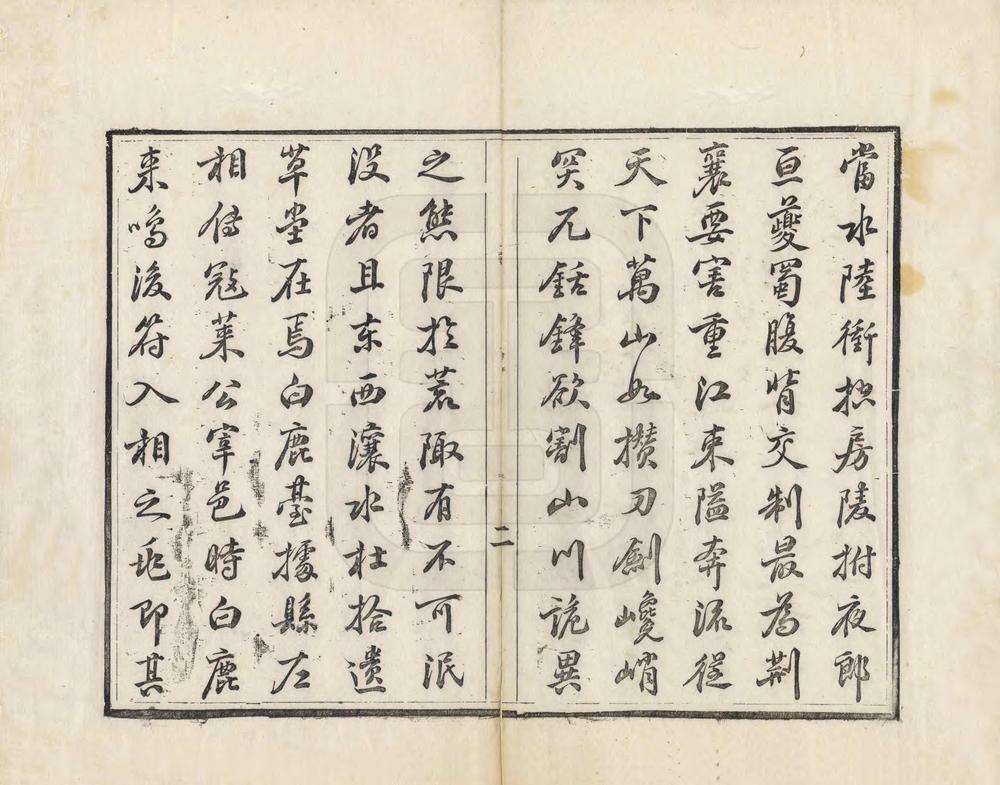 當水陸衝控房陵拊夜郎
亘夔蜀腹背交制最為荆
襄要害重江束隘奔流從
天下萬山如攢刀劍巉峭
突兀銛鋒欲劃山川詭異
之熊限扵荒陬有不可泯
没者且东西瀼水杜拾遺
草堂在焉白鹿臺據縣左
相傳冦莱公宰邑時白鹿
来鳴後符入相之兆即其
二